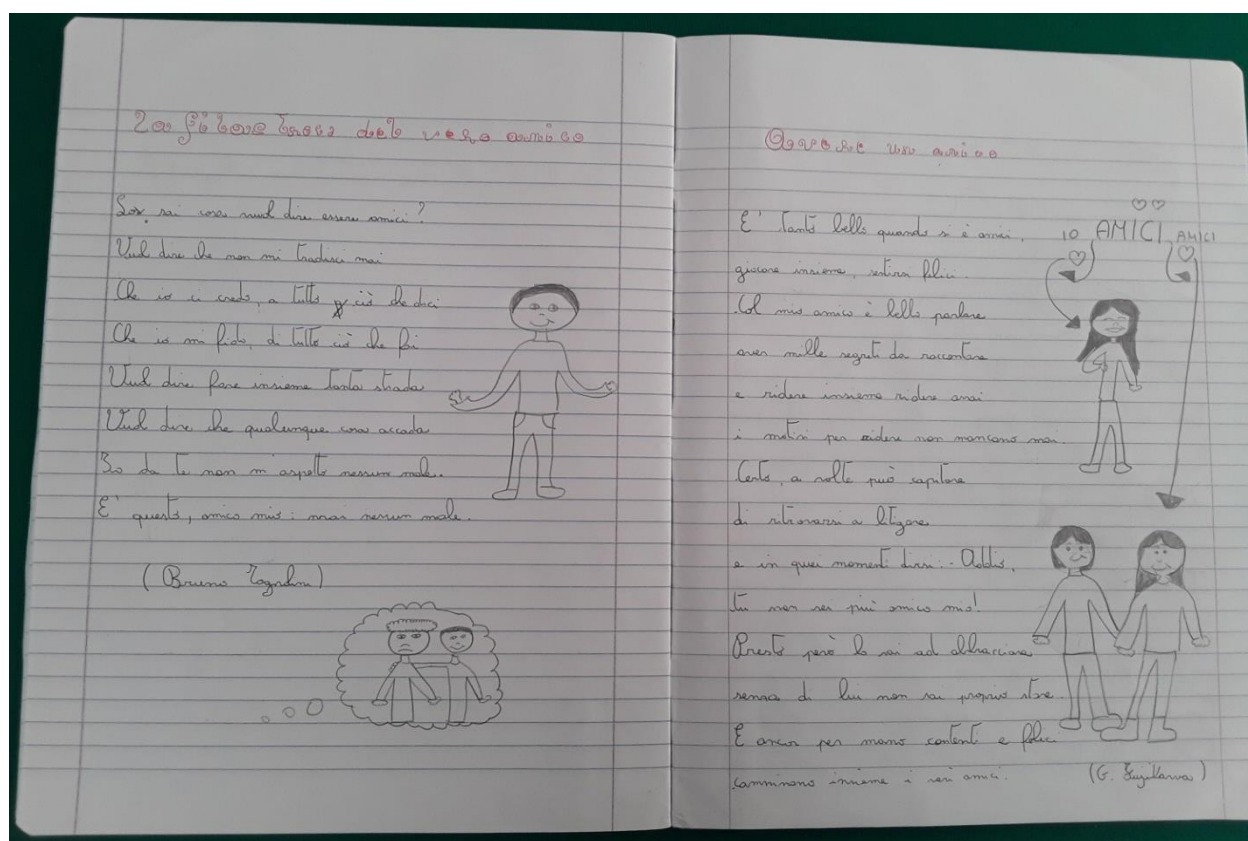 La filastrocca del vero amico
Lo sai cosa vuol dire essere amici?
Vuol dire che non mi tradisci mai
Che io ci credo, a tutto ciò che dici
Che io mi fido, di tutto ciò che fai
Vuol dire fare insieme tanta strada
Vuol dire che qualunque cosa accada
Io da te non m'aspetto nessun male..
E' questo, amico mio: mai nessun male.
(Bruno Tognolini)
Avere un amico
E' tanto bello quando si è amici,
giocare insieme, sentirsi felici.
Col mio amico è bello parlare
aver mille segreti da raccontare
e ridere insieme ridere assai
i motivi per ridere non mancano mai.
Certo, a volte può capitare
di ritrovarsi a litigare
e in quei momenti dirsi: - Addio,
tu non sei più amico mio!
Presto però lo vai ad abbracciare
senza di lui non sai proprio stare.
E ancor per mano contenti e felici
camminano insieme i veri amici.
(G. )
IO AMICI AMICI